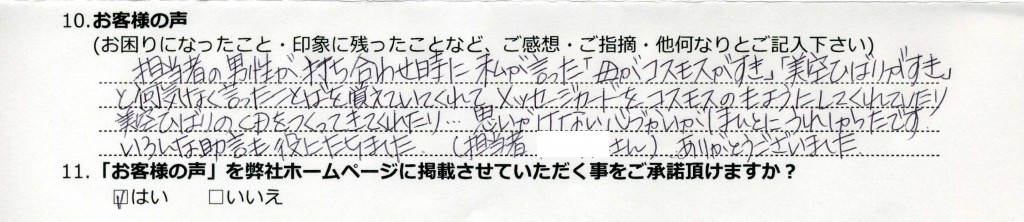 10.お客様の声
(お困りになったこと・印象に残ったことなど、ご感想・ご指摘・他何なりとご記入下さい)
担当者の男性が打ち合わせ時に私が言った「母がコスモスがすき」「美空ひばりがすき」
と何気なく言ったことばを覚えていてくれて メッセージカードをコスモスのもようにしてくれていたり
美空ひばりの曲をつくってきてくれたり… 思いがけない心づかいがほんとにうれしかったです
いろいろな助言も役にたちました. (担当者 さん) ありがとうございました.
11.「お客様の声」を弊社ホームページに掲載させていただく事をご承諾頂けますか？
☑はい □いいえ